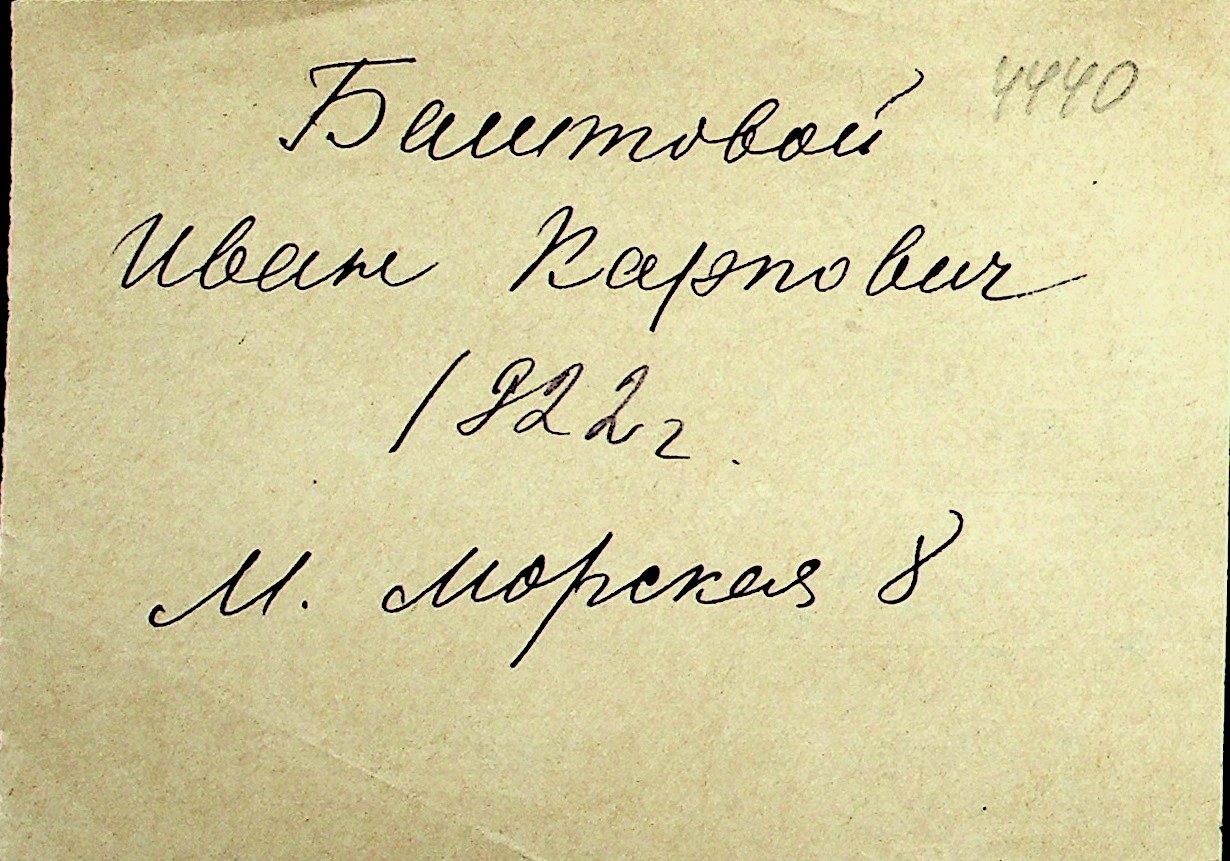 4440
Баштовой
Иван Карпович
1922г.
М. Морская 8